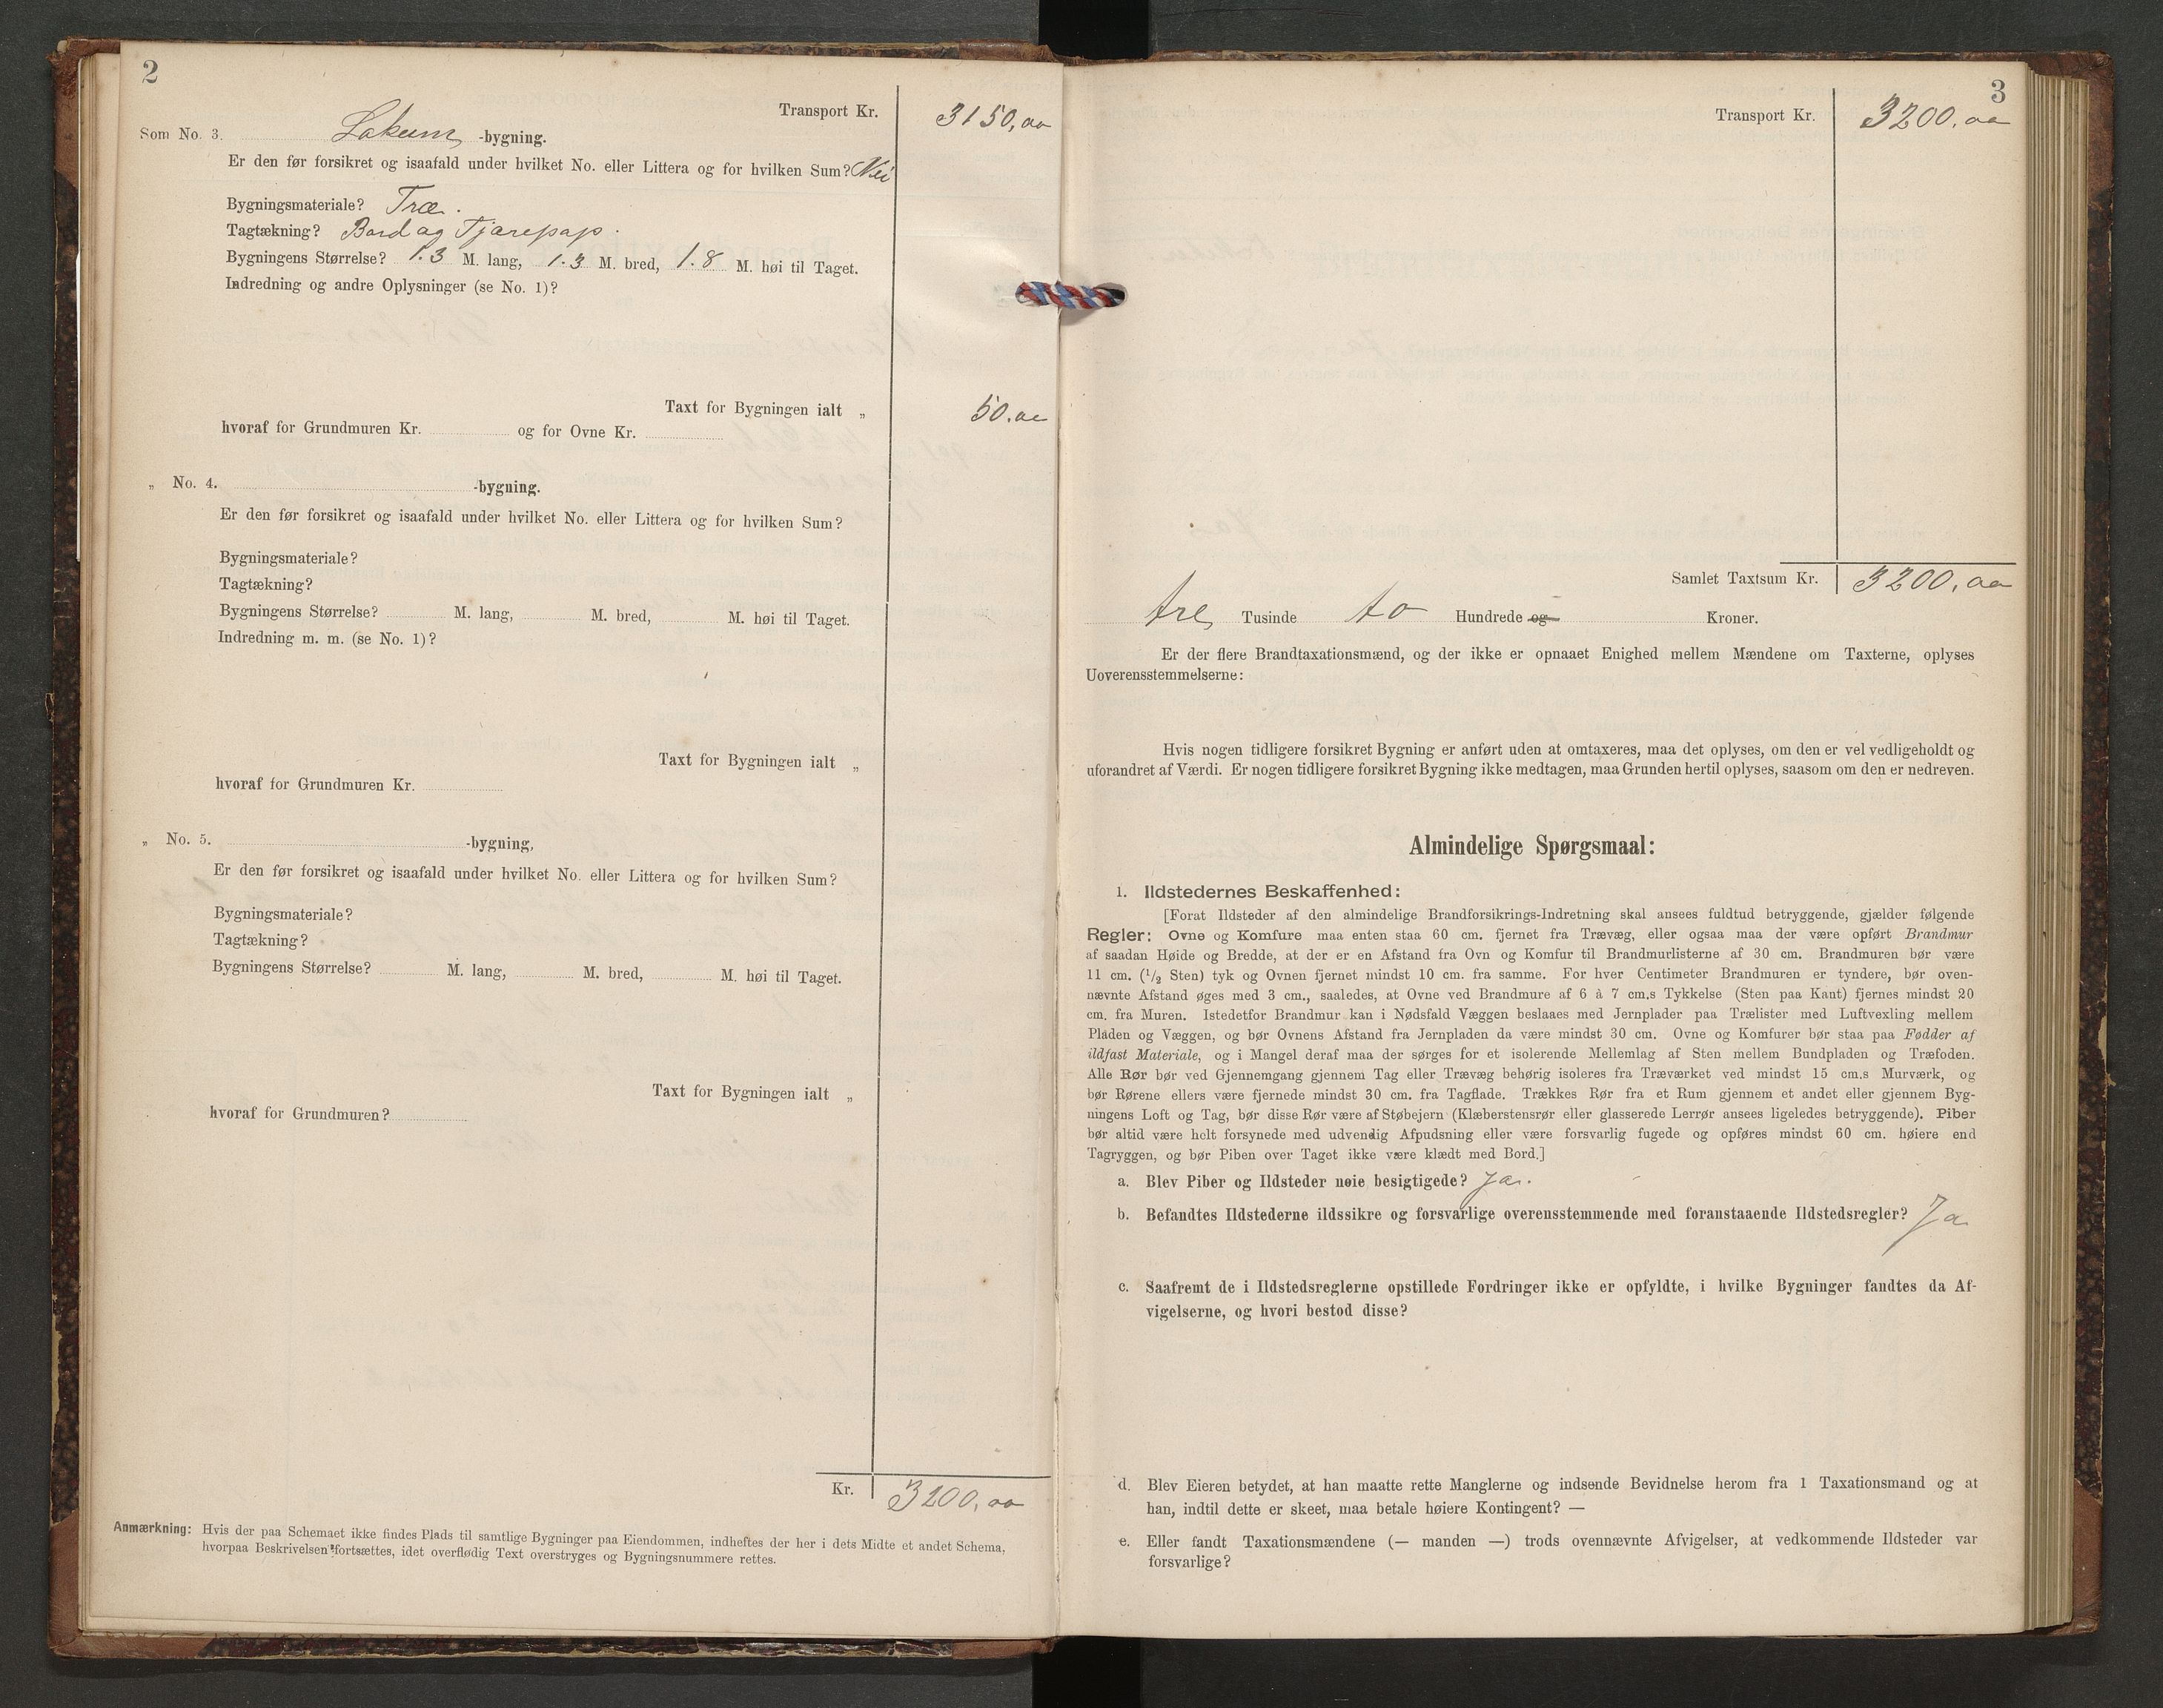 2
Transport Kr. 3150,00
Som No. 3. Lokum -bygning.
Er den før forsikret og isaafald under hvilket No. eller Littera og for hvilken Sum? Nei
Bygningsmateriale? Træ.
Tagtækning? Bord og Tjærepap.
Bygningens Størrelse? 1.3 M. lang, 1.3 M. bred, 1.8 M. høi til Taget.
Indredning og andre Oplysninger (se No. 1)?
Taxt for Bygningen ialt „ 50.00
hvoraf for Grundmuren Kr. og for Ovne Kr.
„ No. 4. -bygning.
Er den før forsikret og isaafald under hvilket No. eller Littera og for hvilken Sum?
Bygningsmateriale?
Tagtækning?
Bygningens Størrelse? M. lang, M. bred, M. høi til Taget.
Indredning m. m. (se No. 1)?
Taxt for Bygningen ialt „
hvoraf for Grundmuren Kr.
„ No. 5. -bygning,
Er den før forsikret og isaafald under hvilket No. eller Littera og for hvilken Sum?
Bygningsmateriale?
Tagtækning?
Bygningens Størrelse? M. lang, M. bred, M. høi til Taget.
Taxt for Bygningen ialt „
hvoraf for Grundmuren?
Kr. 3200,00
Anmærkning: Hvis der paa Schemaet ikke findes Plads til samtlige Bygninger paa Eiendommen, indheftes der her i dets Midte et andet Schema,
hvorpaa Beskrivelsen fortsættes, idet overflødig Text overstryges og Bygningsnummere rettes.
3
Transport Kr. 3200,00
Samlet Taxtsum Kr. 3200,00
tre Tusinde to Hundrede og Kroner.
Er der flere Brandtaxationsmænd, og der ikke er opnaaet Enighed mellem Mændene om Taxterne, oplyses
Uoverensstemmelserne:
Hvis nogen tidligere forsikret Bygning er anført uden at omtaxeres, maa det oplyses, om den er vel vedligeholdt og
uforandret af Værdi. Er nogen tidligere forsikret Bygning ikke medtagen, maa Grunden hertil oplyses, saasom om den er nedreven.
Almindelige Spørgsmaal:
1. Ildstedernes Beskaffenhed:
[Forat Ildsteder af den almindelige Brandforsikrings-Indretning skal ansees fuldtud betryggende, gjælder følgende
Regler: Ovne og Komfure maa enten staa 60 cm. fjernet fra Trævæg, eller ogsaa maa der være opført Brandmur
af saadan Høide og Bredde, at der er en Afstand fra Ovn og Komfur til Brandmurlisterne af 30 cm. Brandmuren bør være
11 cm. (1/2 Sten) tyk og Ovnen fjernet mindst 10 cm. fra samme. For hver Centimeter Brandmuren er tyndere, bør oven-
nævnte Afstand øges med 3 cm., saaledes, at Ovne ved Brandmure af 6 à 7 cm.s Tykkelse (Sten paa Kant) fjernes mindst 20
cm. fra Muren. Istedetfor Brandmur kan i Nødsfald Væggen beslaaes med Jernplader paa Trælister med Luftvexling mellem
Pladen og Væggen, og bør Ovnens Afstand fra Jernpladen da være mindst 30 cm. Ovne og Komfurer bør staa paa Fødder af
ildfast Materiale, og i Mangel deraf maa der sørges for et isolerende Mellemlag af Sten mellem Bundpladen og Træfoden.
Alle Rør bør ved Gjennemgang gjennem Tag eller Trævæg behørig isoleres fra Træværket ved mindst 15 cm.s Murværk, og
bør Rørene ellers være fjernede mindst 30 cm. fra Tagflade. Trækkes Rør fra et Rum gjennem et andet eller gjennem Byg-
ningens Loft og Tag, bør disse Rør være af Støbejern (Klæberstensrør eller glasserede Lerrør ansees ligeledes betryggende). Piber
bør altid være helt forsynede med udvendig Afpudsning eller være forsvarlig fugede og opføres mindst 60 cm. høiere end
Tagryggen, og bør Piben over Taget ikke være klædt med Bord.]
a. Blev Piber og Ildsteder nøie besigtigede? Ja.
b. Befandtes Ildstederne ildssikre og forsvarlige overensstemmende med foranstaaende Ildstedsregler? Ja
c. Saafremt de i Ildstedsreglerne opstillede Fordringer ikke er opfyldte, i hvilke Bygninger fandtes da Af-
vigelserne, og hvori bestod disse?
d. Blev Eieren betydet, at han maatte rette Manglerne og indsende Bevidnelse herom fra 1 Taxationsmand og at
han, indtil dette er skeet, maa betale høiere Kontingent? —
e. Eller fandt Taxationsmændene (— manden —) trods ovennævnte Afvigelser, at vedkommende Ildsteder var
forsvarlige?